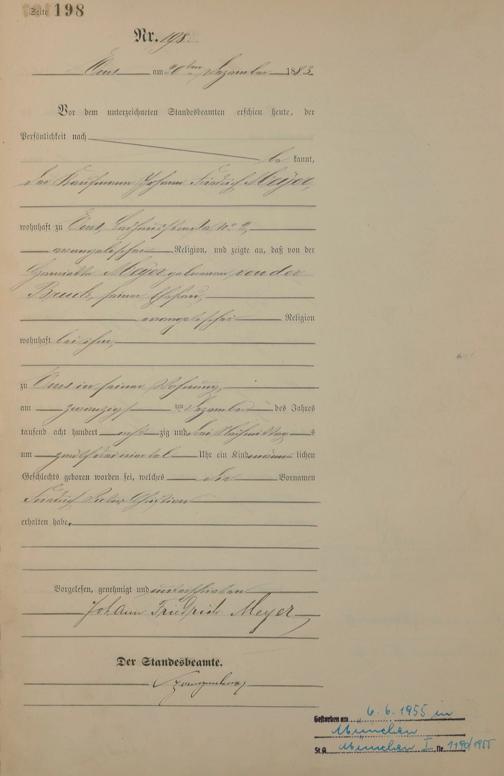 Seite 198
Nr. 198.
Ems am 20ten Dezember 1883
Vor dem unterzeichneten Standesbeamten erschien heute, der
Persönlichkeit nach
be kannt,
der Kaufmann Johann Friedrich Meyer,
wohnhaft zu Ems,
evangelischer Religion, und zeigte an, daß von der
Meyer geborenen von der
Bruck, seiner Ehefrau,
evangelischer Religion
wohnhaft bei ihm,
zu Ems in seiner Wohnung,
am zwanzigsten Dezember des Jahres
tausend acht hundert acht zig und drei Nachmittags
um Uhr ein Kind männ lichen
Geschlechts geboren worden sei, welches die Vornamen
Friedrich Peter Christian
erhalten habe.
Vorgelesen, genehmigt und unterschrieben
Johann Friedrich Meyer
Der Standesbeamte.
Gestorben am 6.6.1955 in
München
St.A. München I Nr. 1190/1955